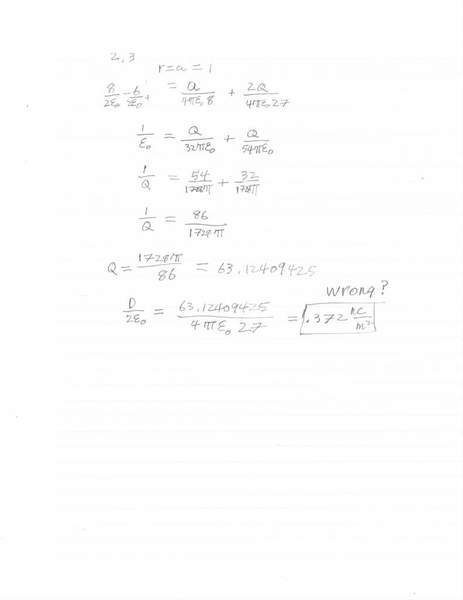 2,3
r=a=1
8/2ε₀ - 6/2ε₀ = Q/4πε₀8 + 2Q/4πε₀27
1/ε₀ = Q/32πε₀ + Q/54πε₀
1/Q = 54/1728π + 32/1728π
1/Q = 86/1728π
Q = 1728π/86 = 63.12409425
wrong?
D/2ε₀ = 63.12409425/4πε₀27 = .372 nC/m²